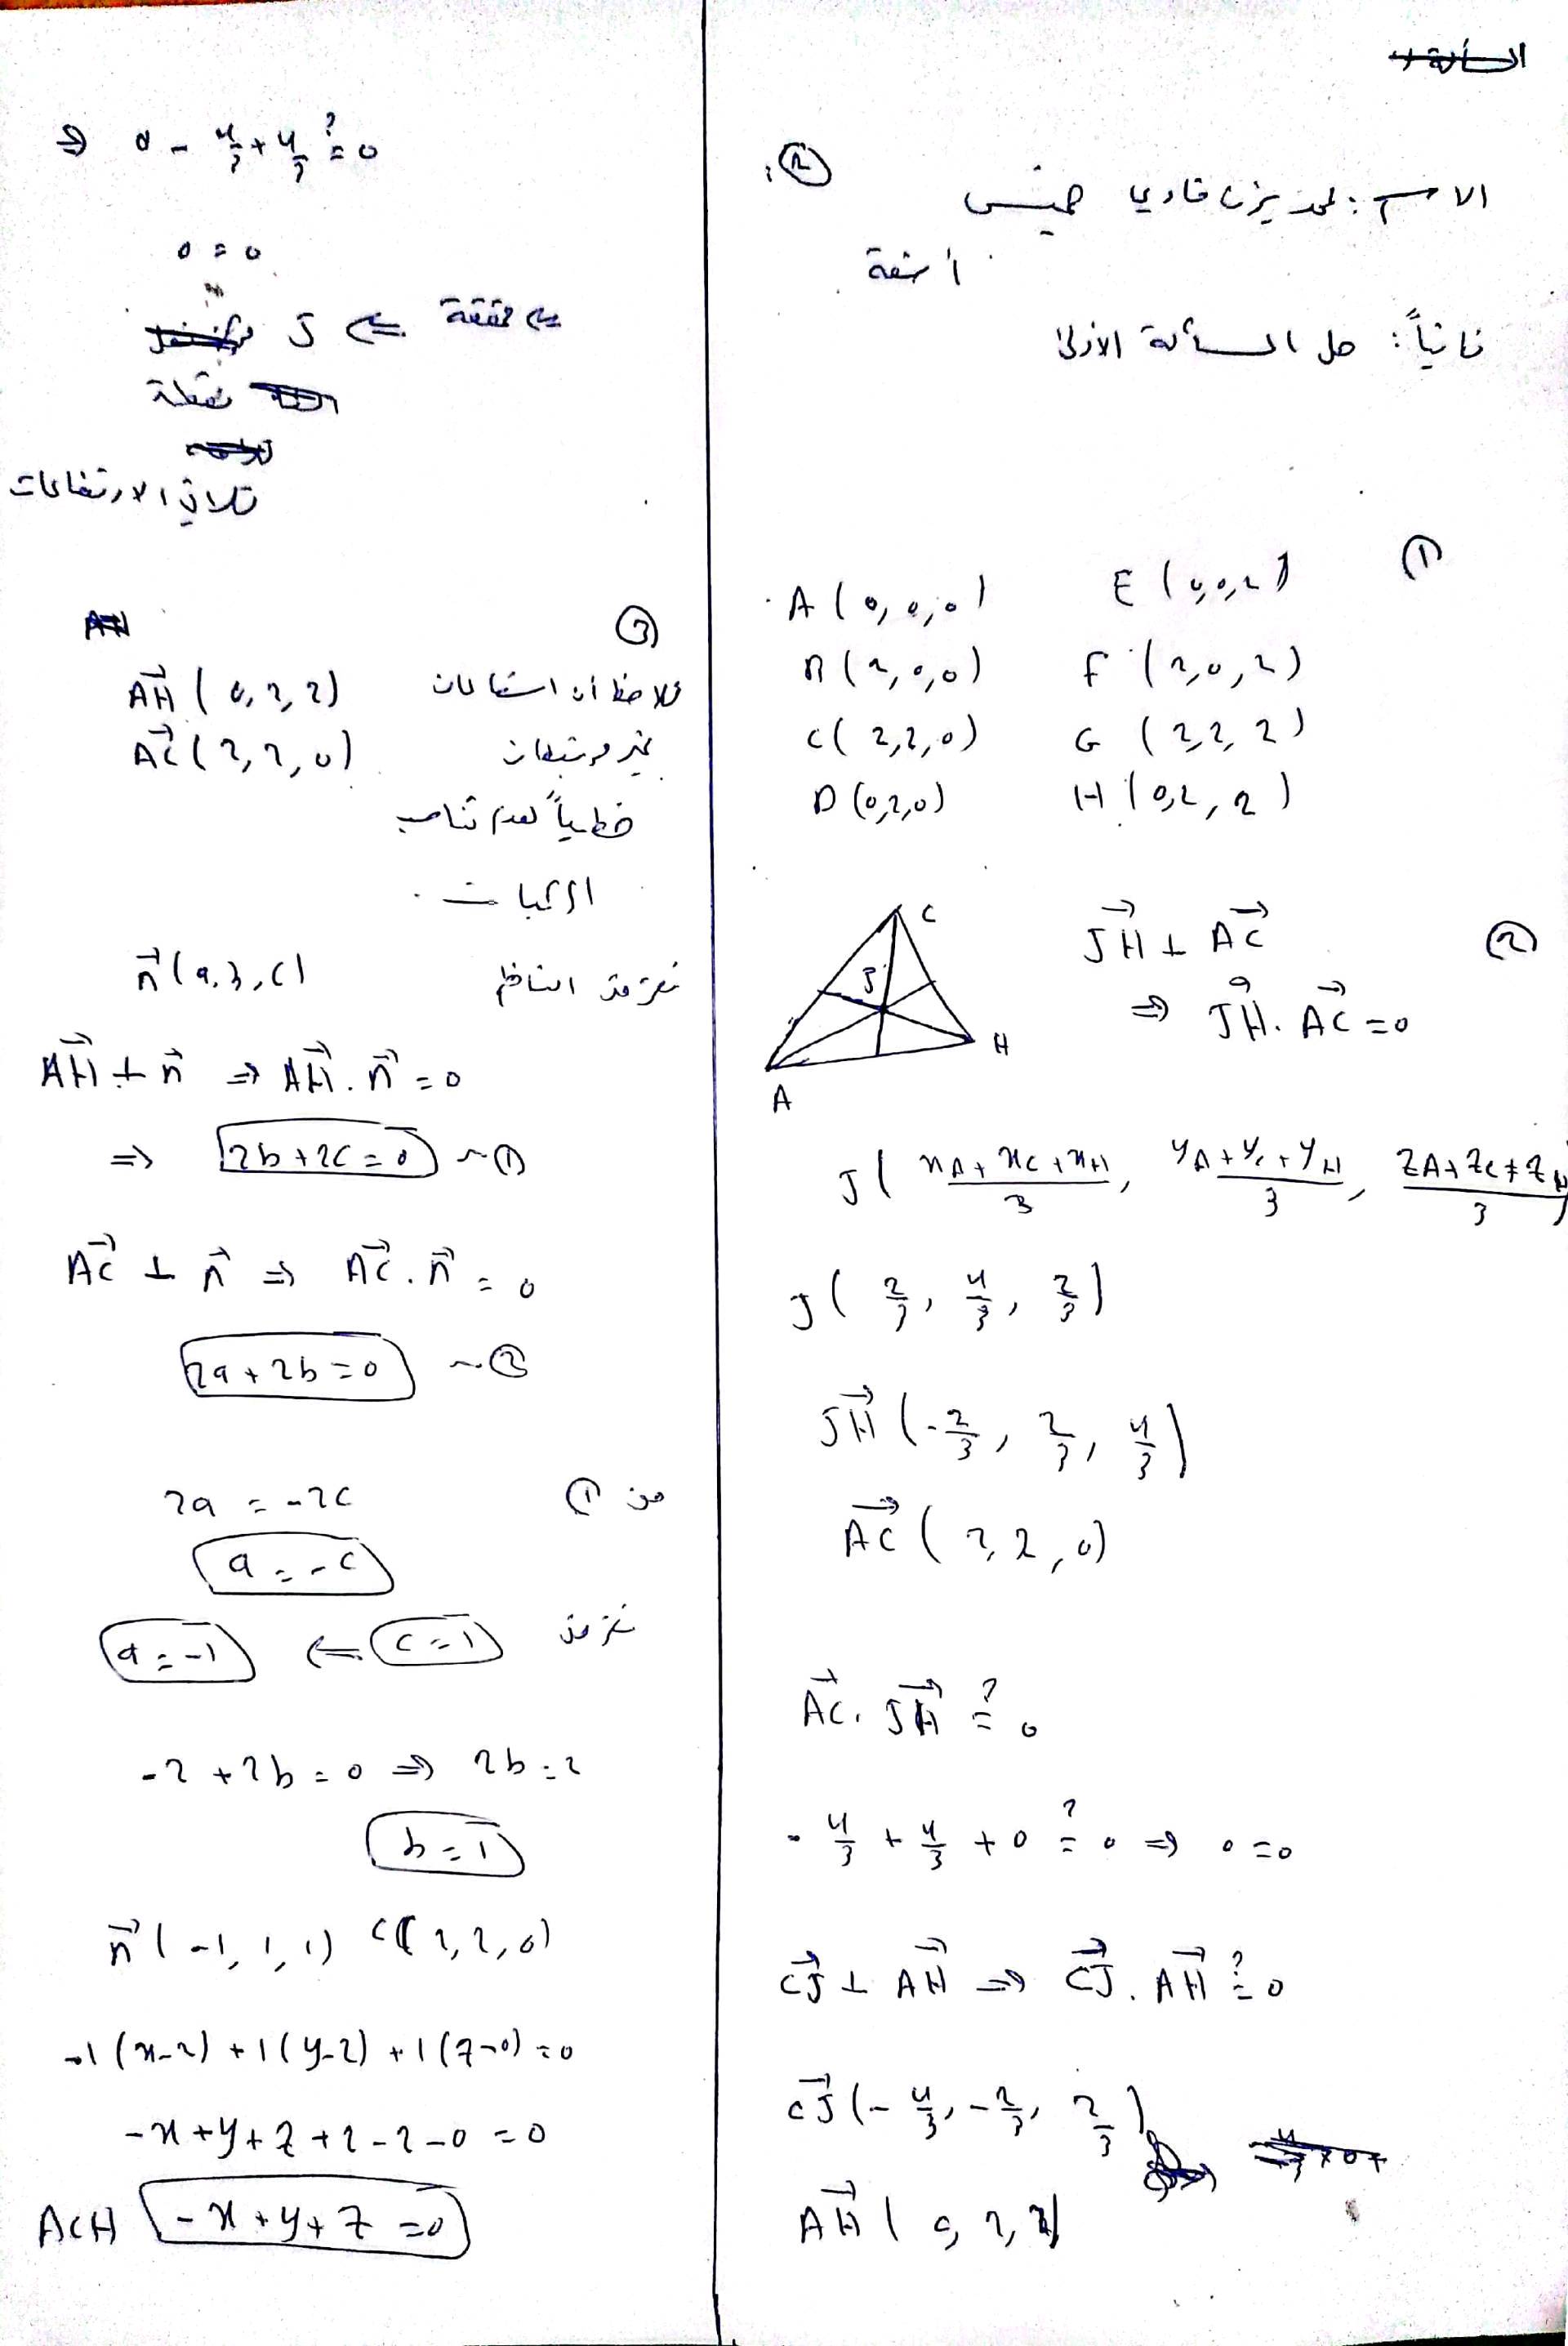 ②
الاسم: محمد يزن فادي
ثانياً: حل المسألة الأولى
①
A (0,0,0) E (0,0,2)
B (2,0,0) F (2,0,2)
C (2,2,0) G (2,2,2)
D (0,2,0) H (0,2,2)
②
JH ⊥ AC
⇒ JH . AC = 0
C
J
H
A
J ( xA + xC + xH / 3 , yA + yC + yH / 3 , zA + zC + zH / 3 )
J ( 2/3 , 4/3 , 2/3 )
JH ( -2/3 , 2/3 , 4/3 )
AC ( 2,2,0)
AC . JH ?= 0
- 4/3 + 4/3 + 0 ?= 0 ⇒ 0 = 0
CJ ⊥ AH ⇒ CJ . AH ?= 0
CJ (- 4/3 , - 2/3 , 2/3 )
AH ( 0, 2, 2)
⇒ 0 - 4/3 + 4/3 ?= 0
0 = 0
⇐ محققة ⇐ J
نقطة
تلاقي الارتفاعات
③
نلاحظ أن الشعاعان AH ( 0,2,2)
غير مرتبطان AC (2,2,0)
خطياً لعدم تناسب
المركبات .
نفرض الناظم n (a,b,c)
AH ⊥ n ⇒ AH . n = 0
⇒ 2b + 2c = 0 ~ ①
AC ⊥ n ⇒ AC . n = 0
2a + 2b = 0 ~ ②
من ① 2a = -2c
a = -c
نفرض c = 1 ⇐ a = -1
-2 + 2b = 0 ⇒ 2b = 2
b = 1
n (-1, 1, 1) C( 2,2,0)
-1(x-2) + 1(y-2) + 1(z-0) = 0
-x + y + z + 2 - 2 - 0 = 0
ACH -x + y + z = 0